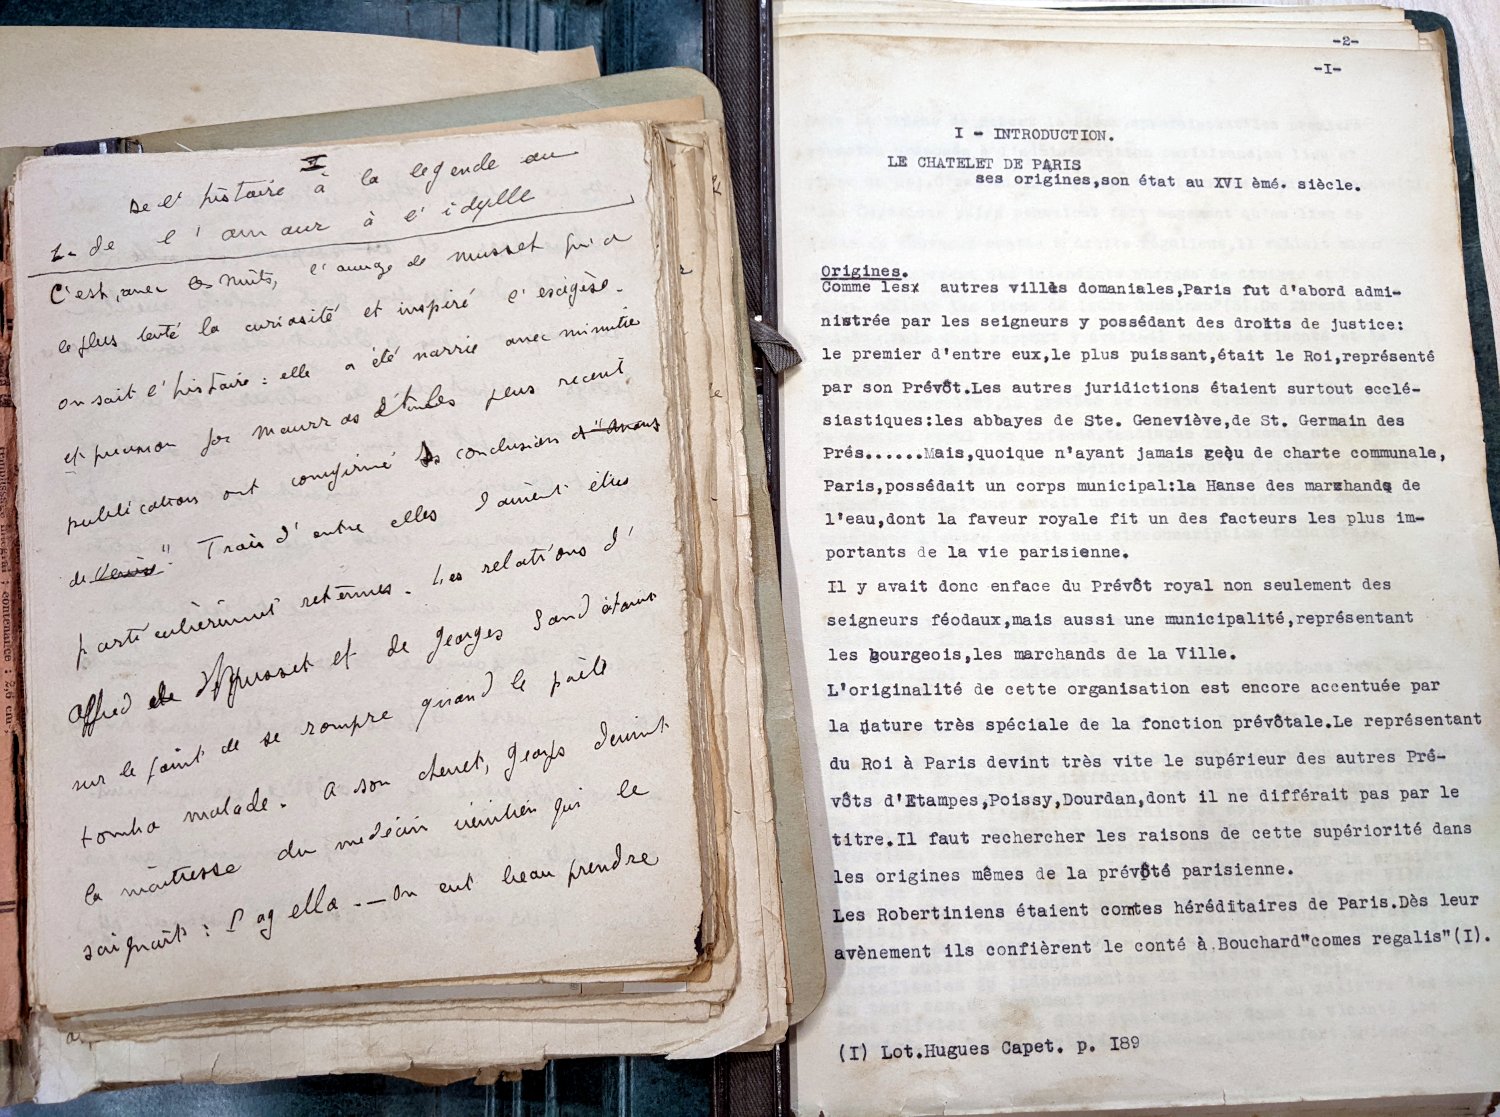 I
De l'histoire à la legende ou
1- de l'amour à l'idylle
C'est, avec les nuits, l'ouvrage de musset qui a
le plus tenté la curiosité et inspiré l'exégèse.
on sait l'histoire : elle a été narrée avec minutie
et précision par maurras études plus recent
publications ont confirmé conclusion
de Venise" Trois d'entre elles étués
particulièrement retenues. Les relations d'
Alfred de Musset et de Georges Sand étaient
sur le point de se rompre quand le poète
tomba malade. A son chevet, Georges devint
la maîtresse du medecin vénitien qui le
soignait : Pagello. — On eut beau prendre
contenance : 2,6 cm
-2-
-I-
I - INTRODUCTION.
LE CHATELET DE PARIS
ses origines,son état au XVI èmé. siècle.
Origines.
Comme lesx autres villes domaniales,Paris fut d'abord admi-
nistrée par les seigneurs y possédant des droits de justice:
le premier d'entre eux,le plus puissant,était le Roi,représenté
par son Prévôt.Les autres juridictions étaient surtout ecclé-
siastiques:les abbayes de Ste. Geneviève,de St. Germain des
Prés......Mais,quoique n'ayant jamais reçu de charte communale,
Paris,possédait un corps municipal:la Hanse des marchands de
l'eau,dont la faveur royale fit un des facteurs les plus im-
portants de la vie parisienne.
Il y avait donc enface du Prévôt royal non seulement des
seigneurs féodaux,mais aussi une municipalité,représentant
les bourgeois,les marchands de la Ville.
L'originalité de cette organisation est encore accentuée par
la nature très spéciale de la fonction prévôtale.Le représentant
du Roi à Paris devint très vite le supérieur des autres Pré-
vôts d'Etampes,Poissy,Dourdan,dont il ne différait pas par le
titre.Il faut rechercher les raisons de cette supériorité dans
les origines mêmes de la prévôté parisienne.
Les Robertiniens étaient comtes héréditaires de Paris.Dès leur
avènement ils confièrent le conté à Bouchard"comes regalis"(I).
(I) Lot.Hugues Capet. p. I89